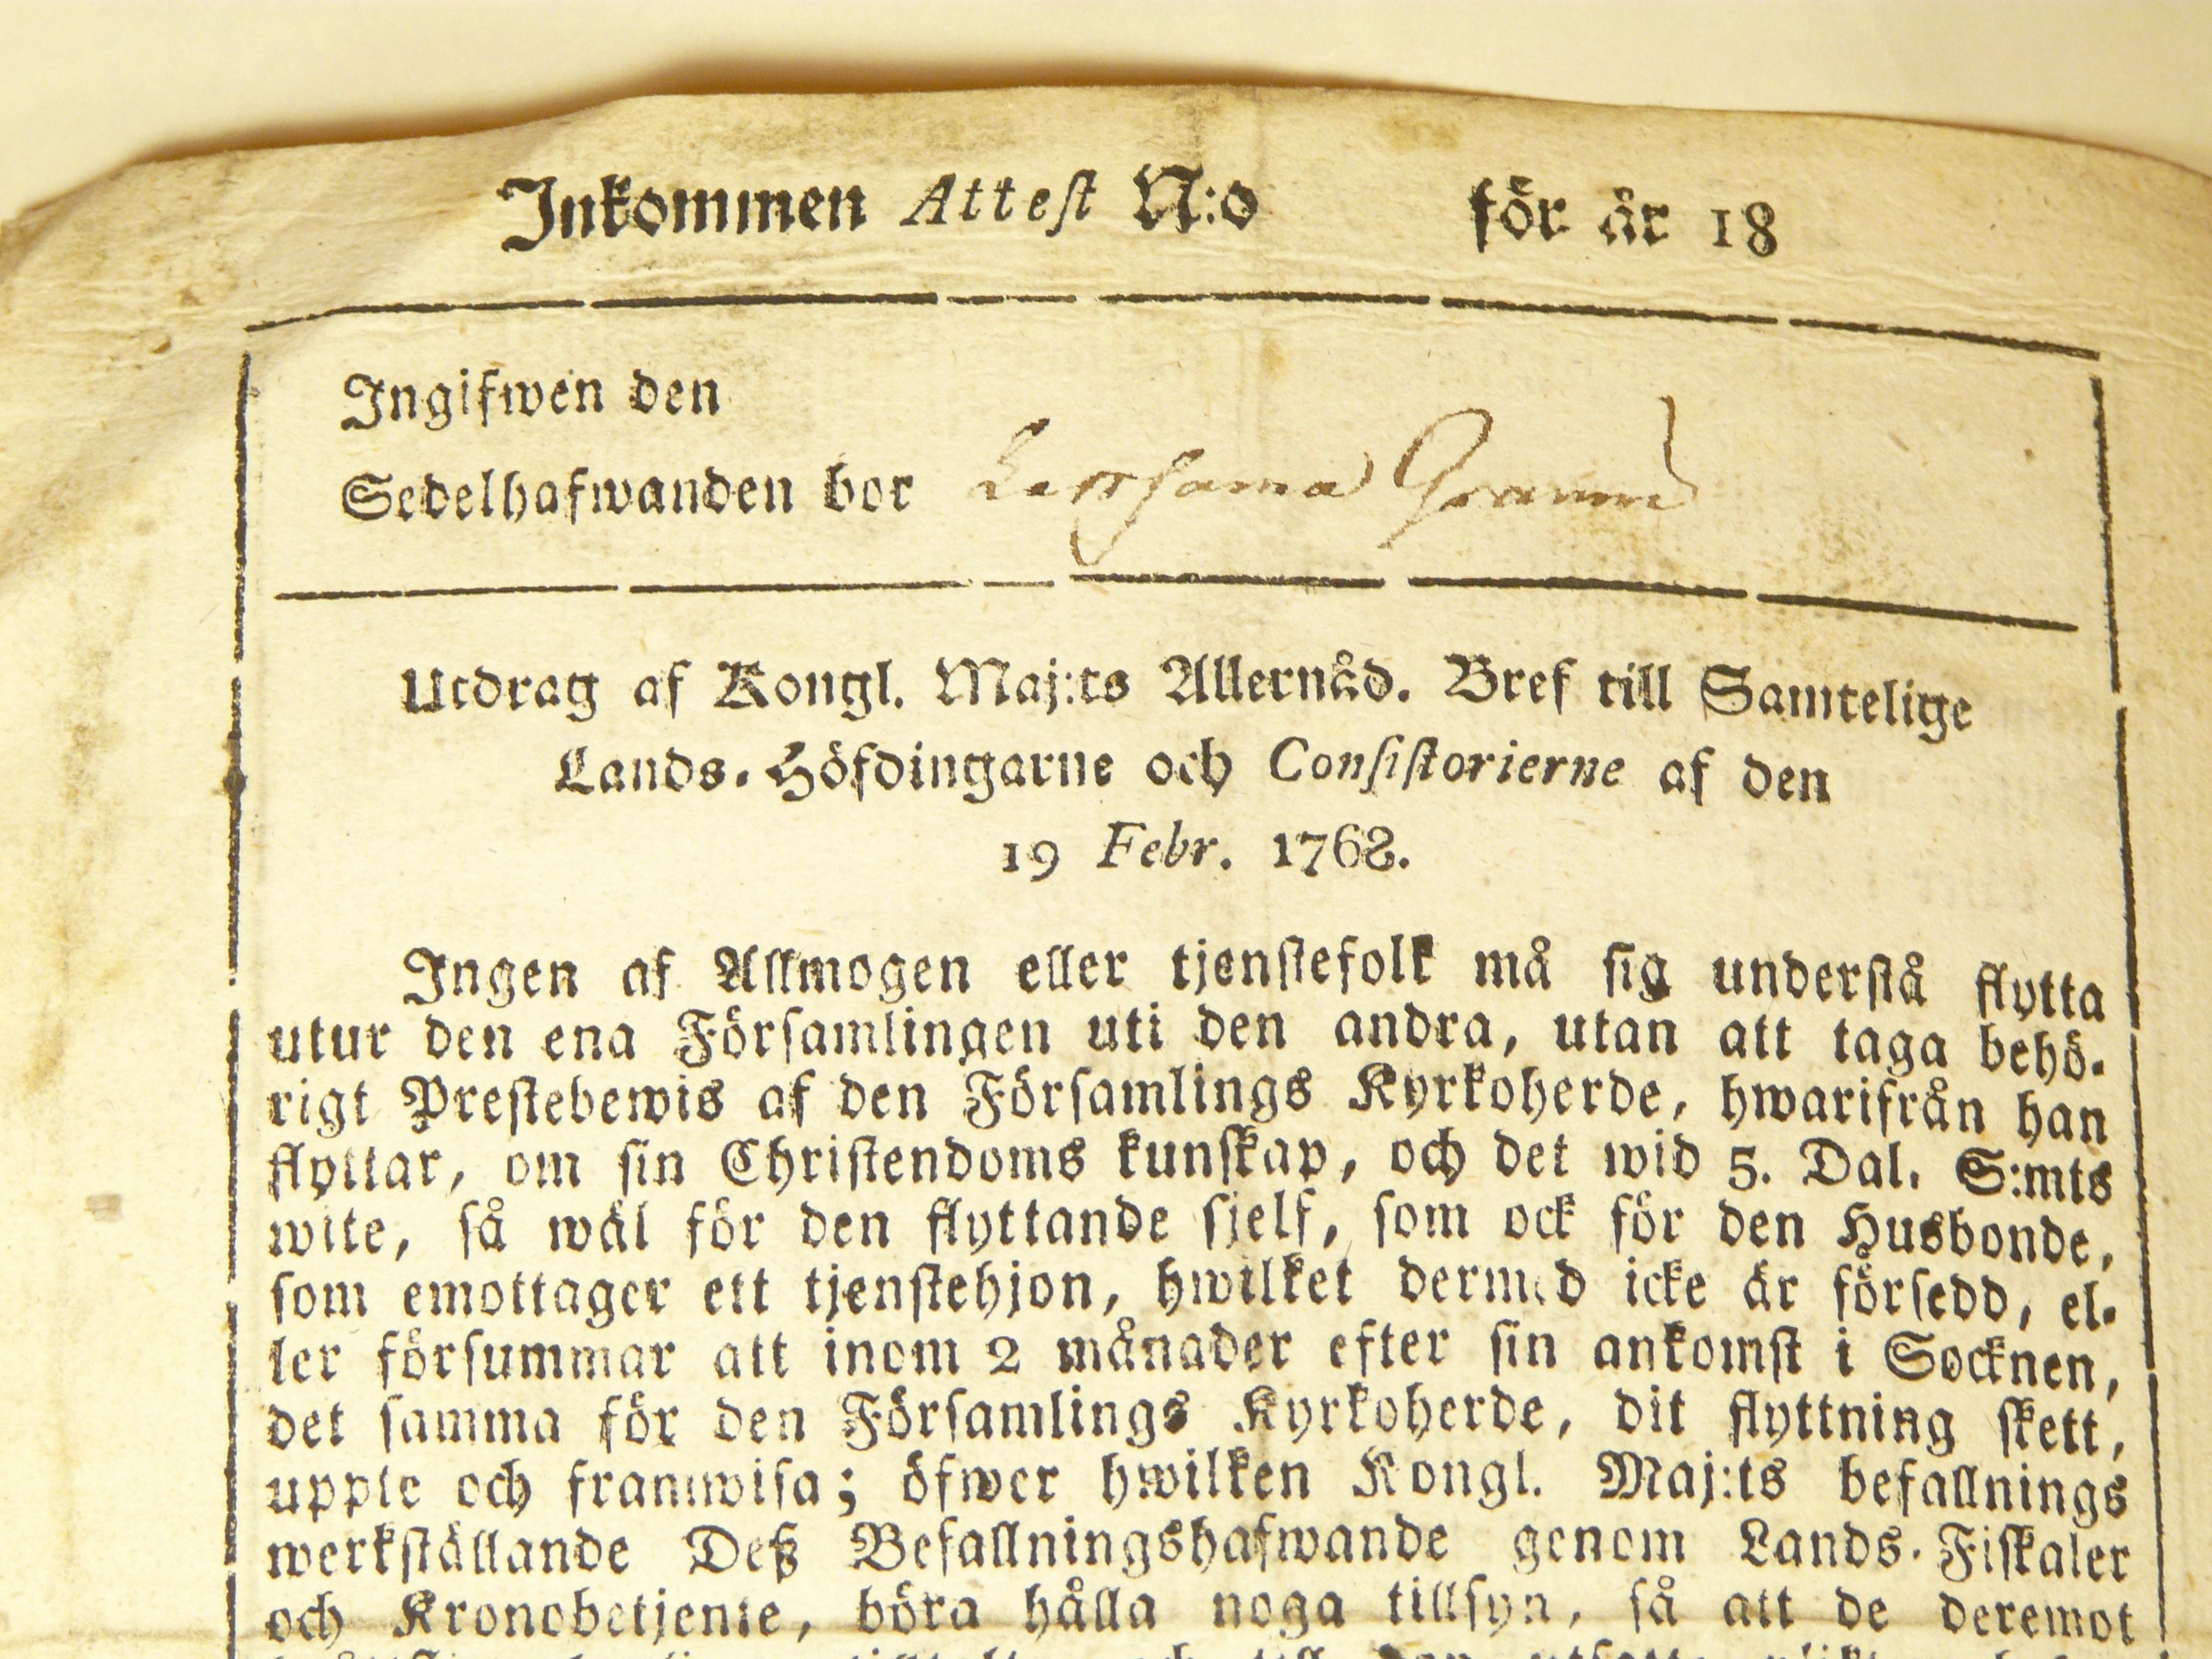 Inkommen Attest N:o för år 18
Ingifwen den
Sedelhafwanden bor
Utdrag af Kongl. Maj:ts Allernåd. Bref till Samtelige
Lands-Höfdingarne och Consistorierne af den
19 Febr. 1768.
Ingen af Allmogen eller tjenstefolk må sig understå flytta
utur den ena Församlingen uti den andra, utan att taga behö-
rigt Prestebewis af den Församlings Kyrkoherde, hwarifrån han
flyttar, om sin Christendoms kunskap, och det wid 5. Dal. S:mts
wite, så wäl för den flyttande sjelf, som ock för den Husbonde,
som emottager ett tjenstehjon, hwilket dermed icke är försedd, el-
ler försummar att inom 2 månader efter sin ankomst i Socknen,
det samma för den Församlings Kyrkoherde, dit flyttning skett,
uppte och framwisa; öfwer hwilken Kongl. Maj:ts befallnings
werkställande Deß Befallningshafwande genom Lands-Fiskaler
och Kronobetjente, böra hålla noga tillsyn, så att de deremot